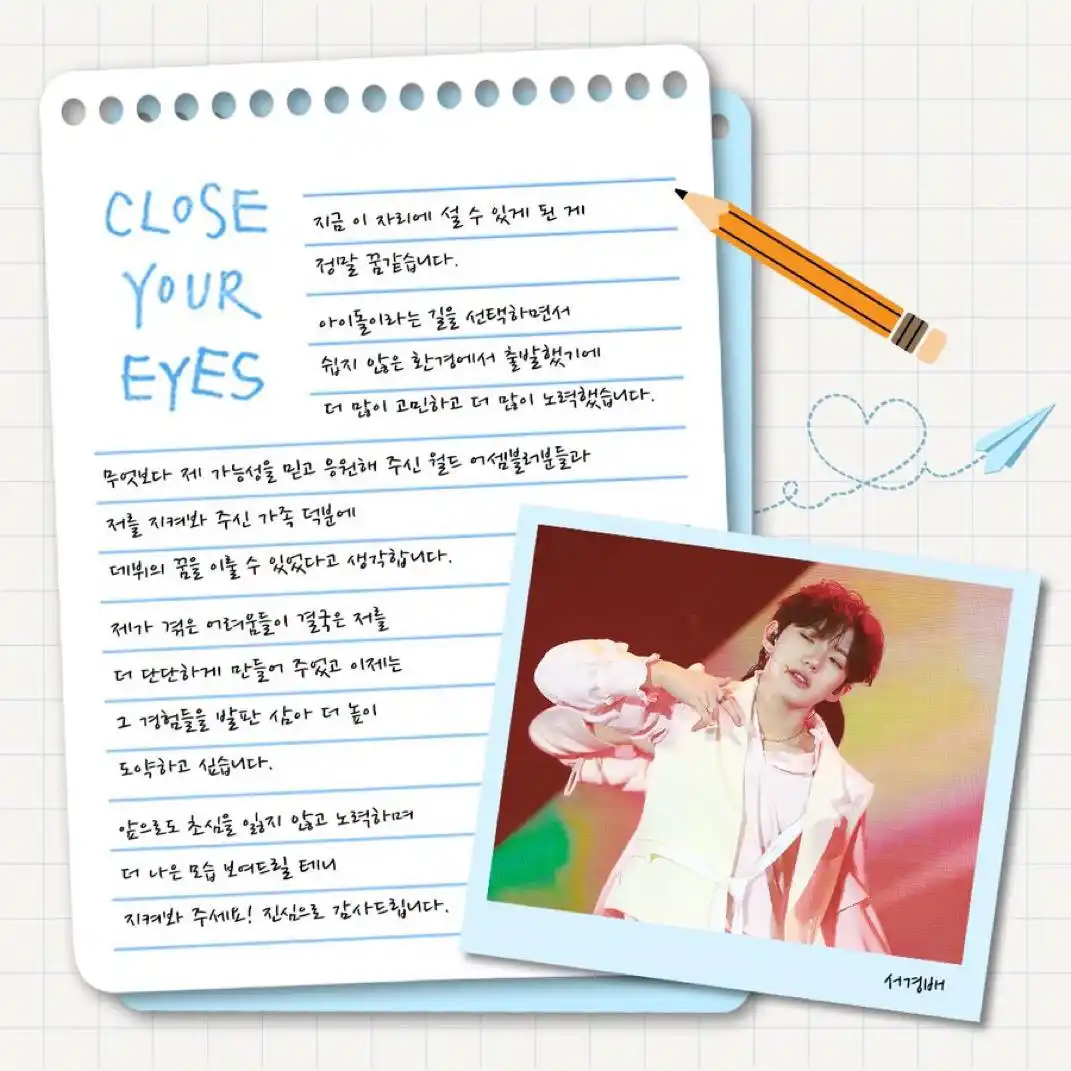 CLOSE
YOUR
EYES
지금 이 자리에 설 수 있게 된 게
정말 꿈같습니다.
아이돌이라는 길을 선택하면서
쉽지 않은 환경에서 출발했기에
더 많이 고민하고 더 많이 노력했습니다.
무엇보다 제 가능성을 믿고 응원해 주신 월드 어셈블러분들과
저를 지켜봐 주신 가족 덕분에
데뷔의 꿈을 이룰 수 있었다고 생각합니다.
제가 겪은 어려움들이 결국은 저를
더 단단하게 만들어 주었고 이제는
그 경험들을 발판 삼아 더 높이
도약하고 싶습니다.
앞으로도 초심을 잃지 않고 노력하며
더 나은 모습 보여드릴 테니
지켜봐 주세요! 진심으로 감사드립니다.
서경배